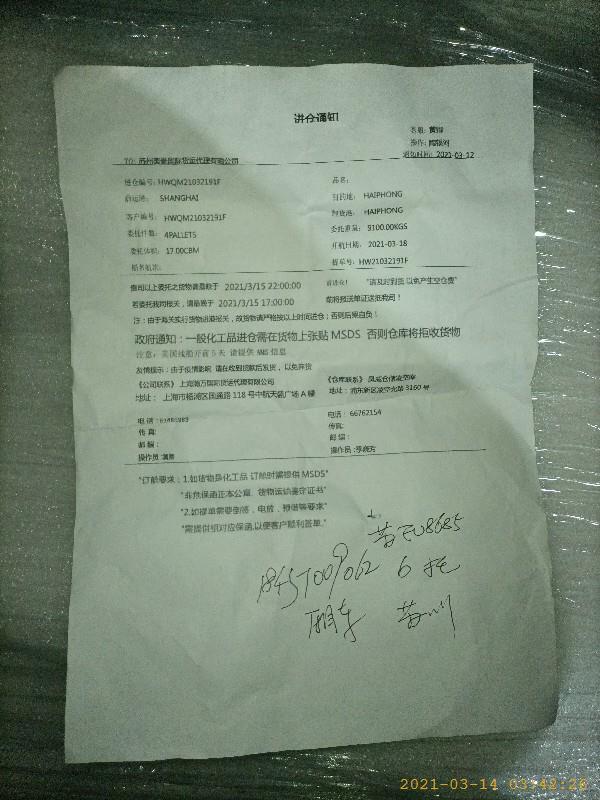 进仓通知
客服：黄锦
操作：
通知时间：2021-03-12
TO: 苏州美集国际货运代理有限公司
进仓编号：HWQM21032191F
品名：
启运港： SHANGHAI
目的地： HAIPHONG
客户编号： HWQM21032191F
卸货港： HAIPHONG
委托件数： 4PALLETS
委托重量： 9100.00KGS
委托体积： 17.00CBM
开航日期： 2021-03-18
船名航次：
提单号：HW21032191F
贵司以上委托之货物请最晚于 2021/3/15 22:00:00 前进仓！ "请及时到货 以免产生空仓费"
若委托我司报关，请最晚于 2021/3/15 17:00:00 前将报送单证送抵我司！
注：由于海关实行货物进港报关，故货物请严格按以上时间进仓；否则后果自负！
政府通知：一般化工品进仓需在货物上张贴 MSDS 否则仓库将拒收货物
注意：美国线船开前5天 请提供 AMS 信息
友情提示：由于疫情影响 请在收到贷款后发货，以免弃货
《公司联系》上海瀚万国际货运代理有限公司
《仓库联系》
地址： 上海市杨浦区国通路 118 号中航天盛广场 A 幢
地址：浦东新区凌空北路 3160 号
电话：
电话： 66762154
传真：
传真：
邮编：
邮编：
操作员：
操作员：李晓芳
"订舱要求：1.如货物是化工品 订舱时需提供 MSDS"
"非危保函正本公章、货物运输鉴定证书"
"2.如提单需要倒签，电放，预借等要求"
"需提供相对应保函,以便客户顺利签单."
苏EU8685
6托
2021-03-14 03:42:26